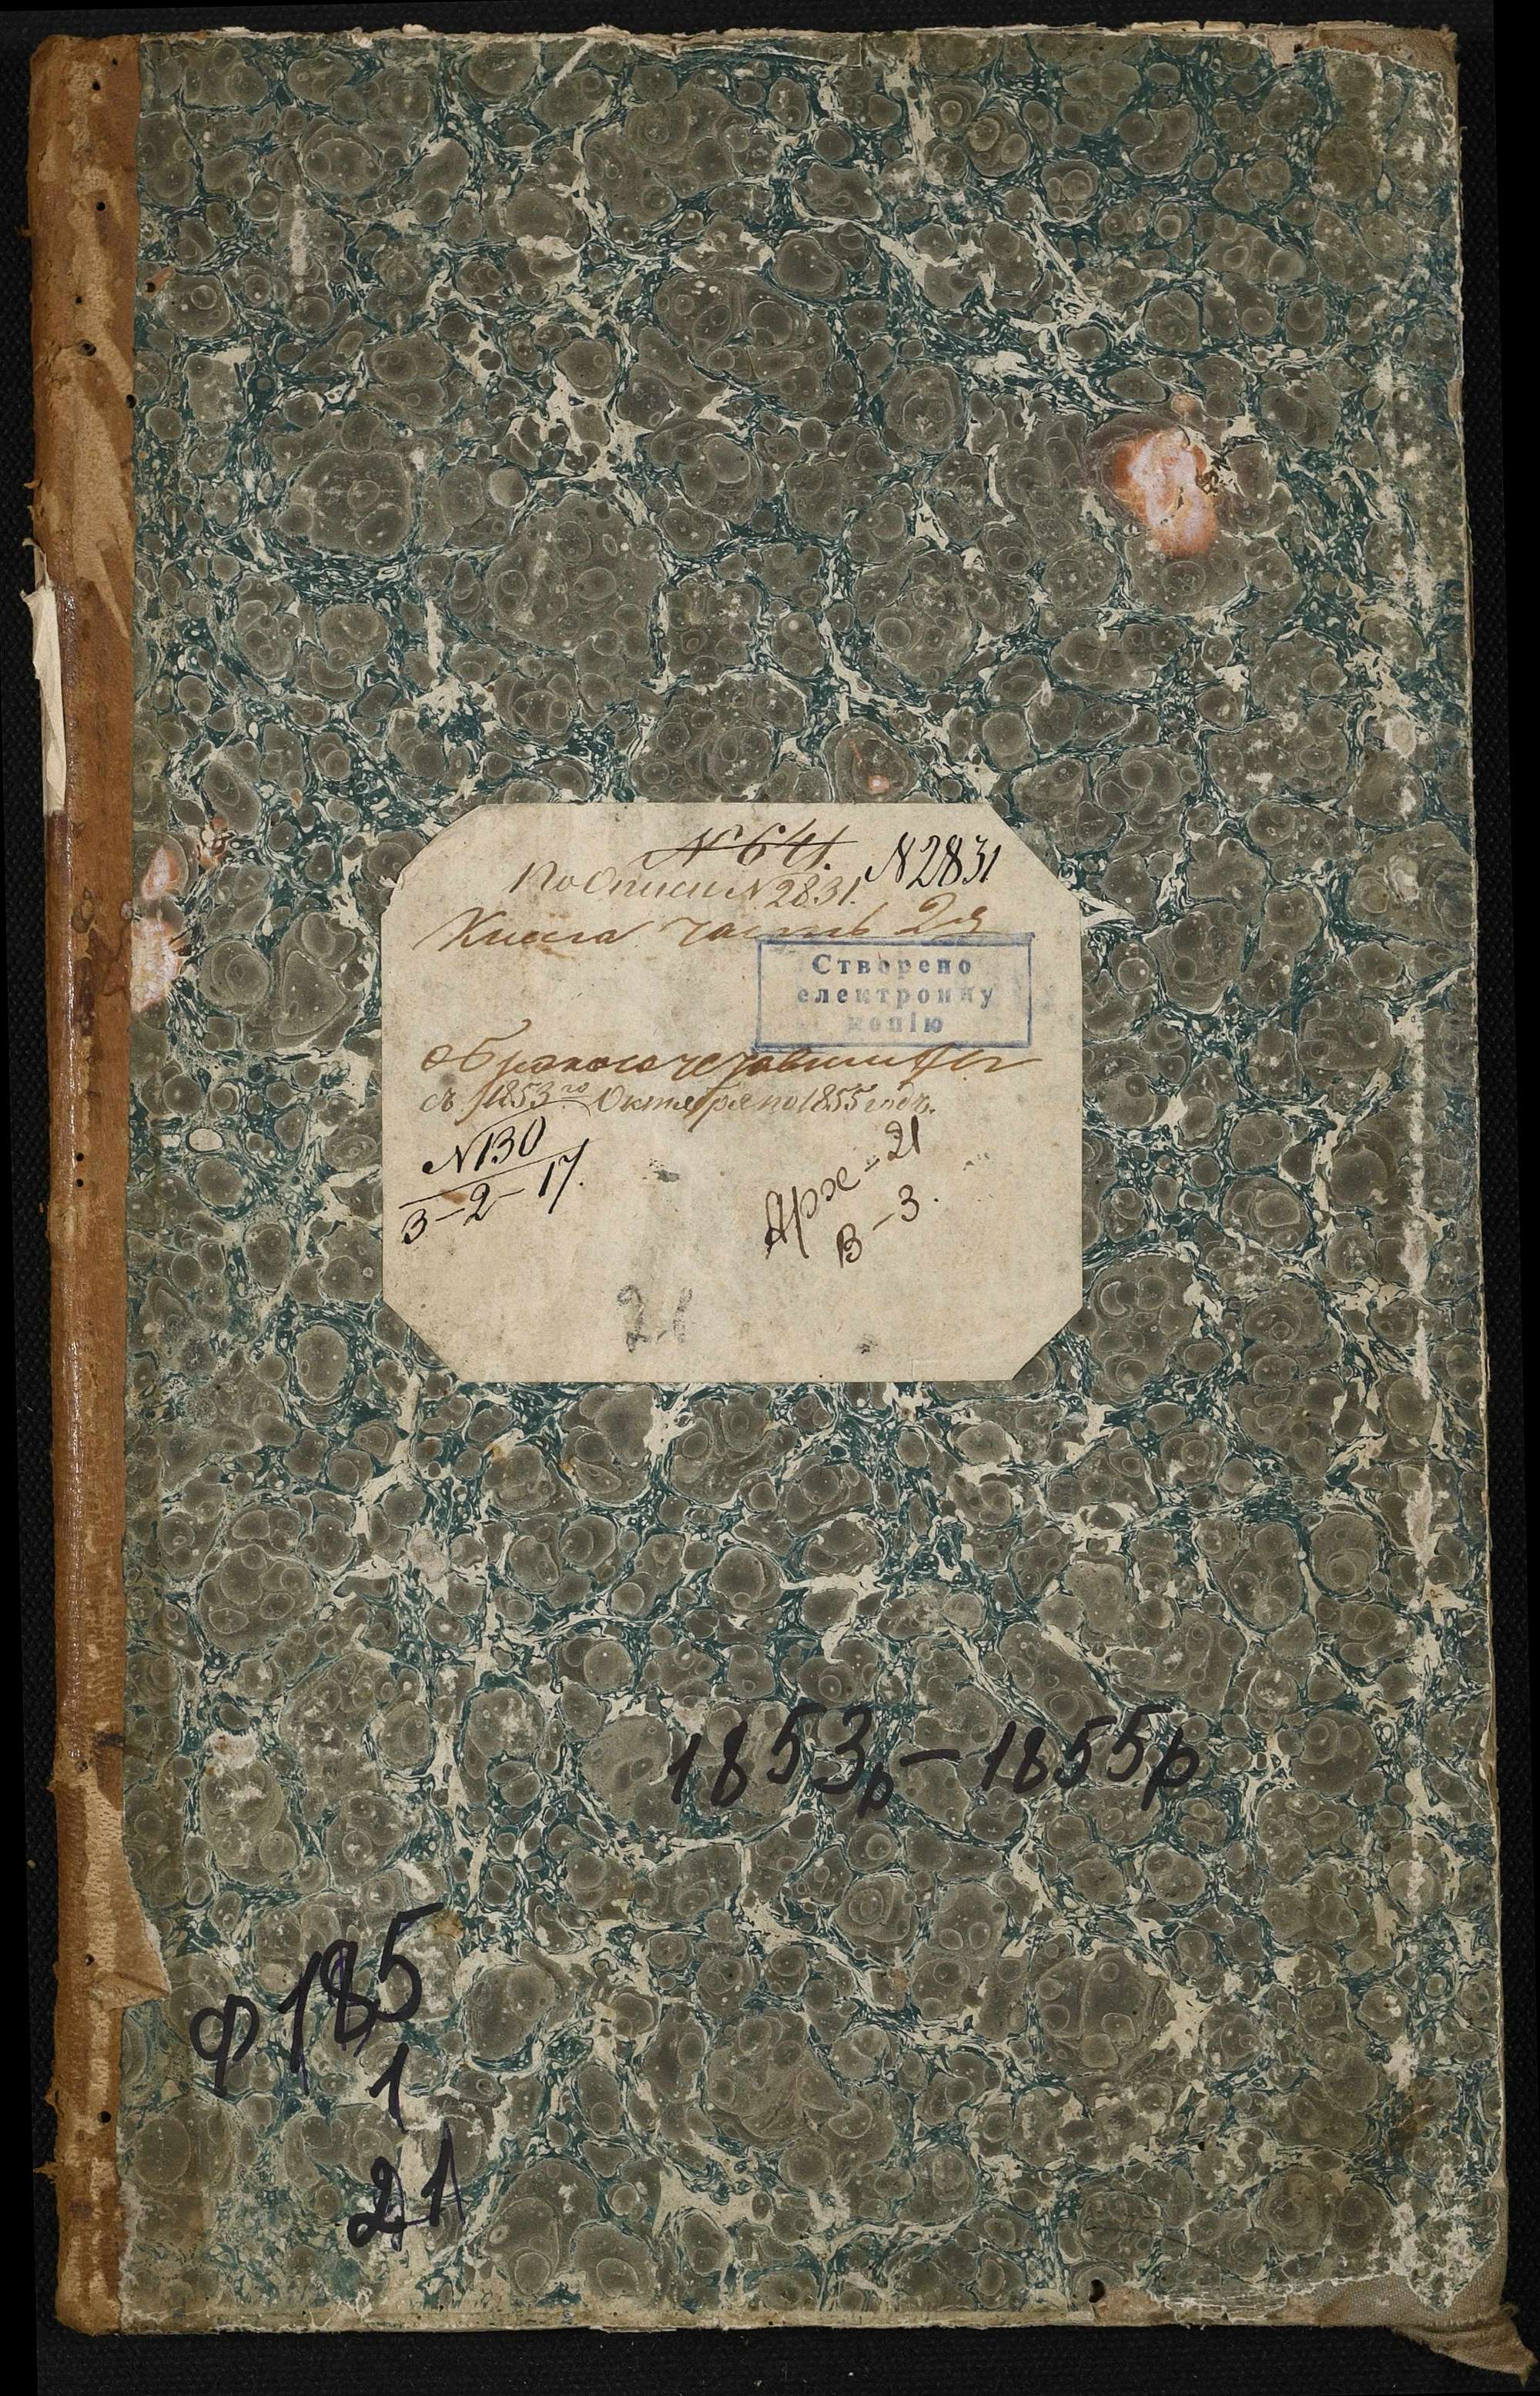 № 641.
№ 2831
По Описи № 2831.
Книга часть 2я
Створено
електронну
копію
О бракосочетавшихся
съ 1853го Октября по 1855 годъ.
№ 130
3-2-17.
Арх-21
В-3.
21
1853р-1855р
Ф 185
1
21